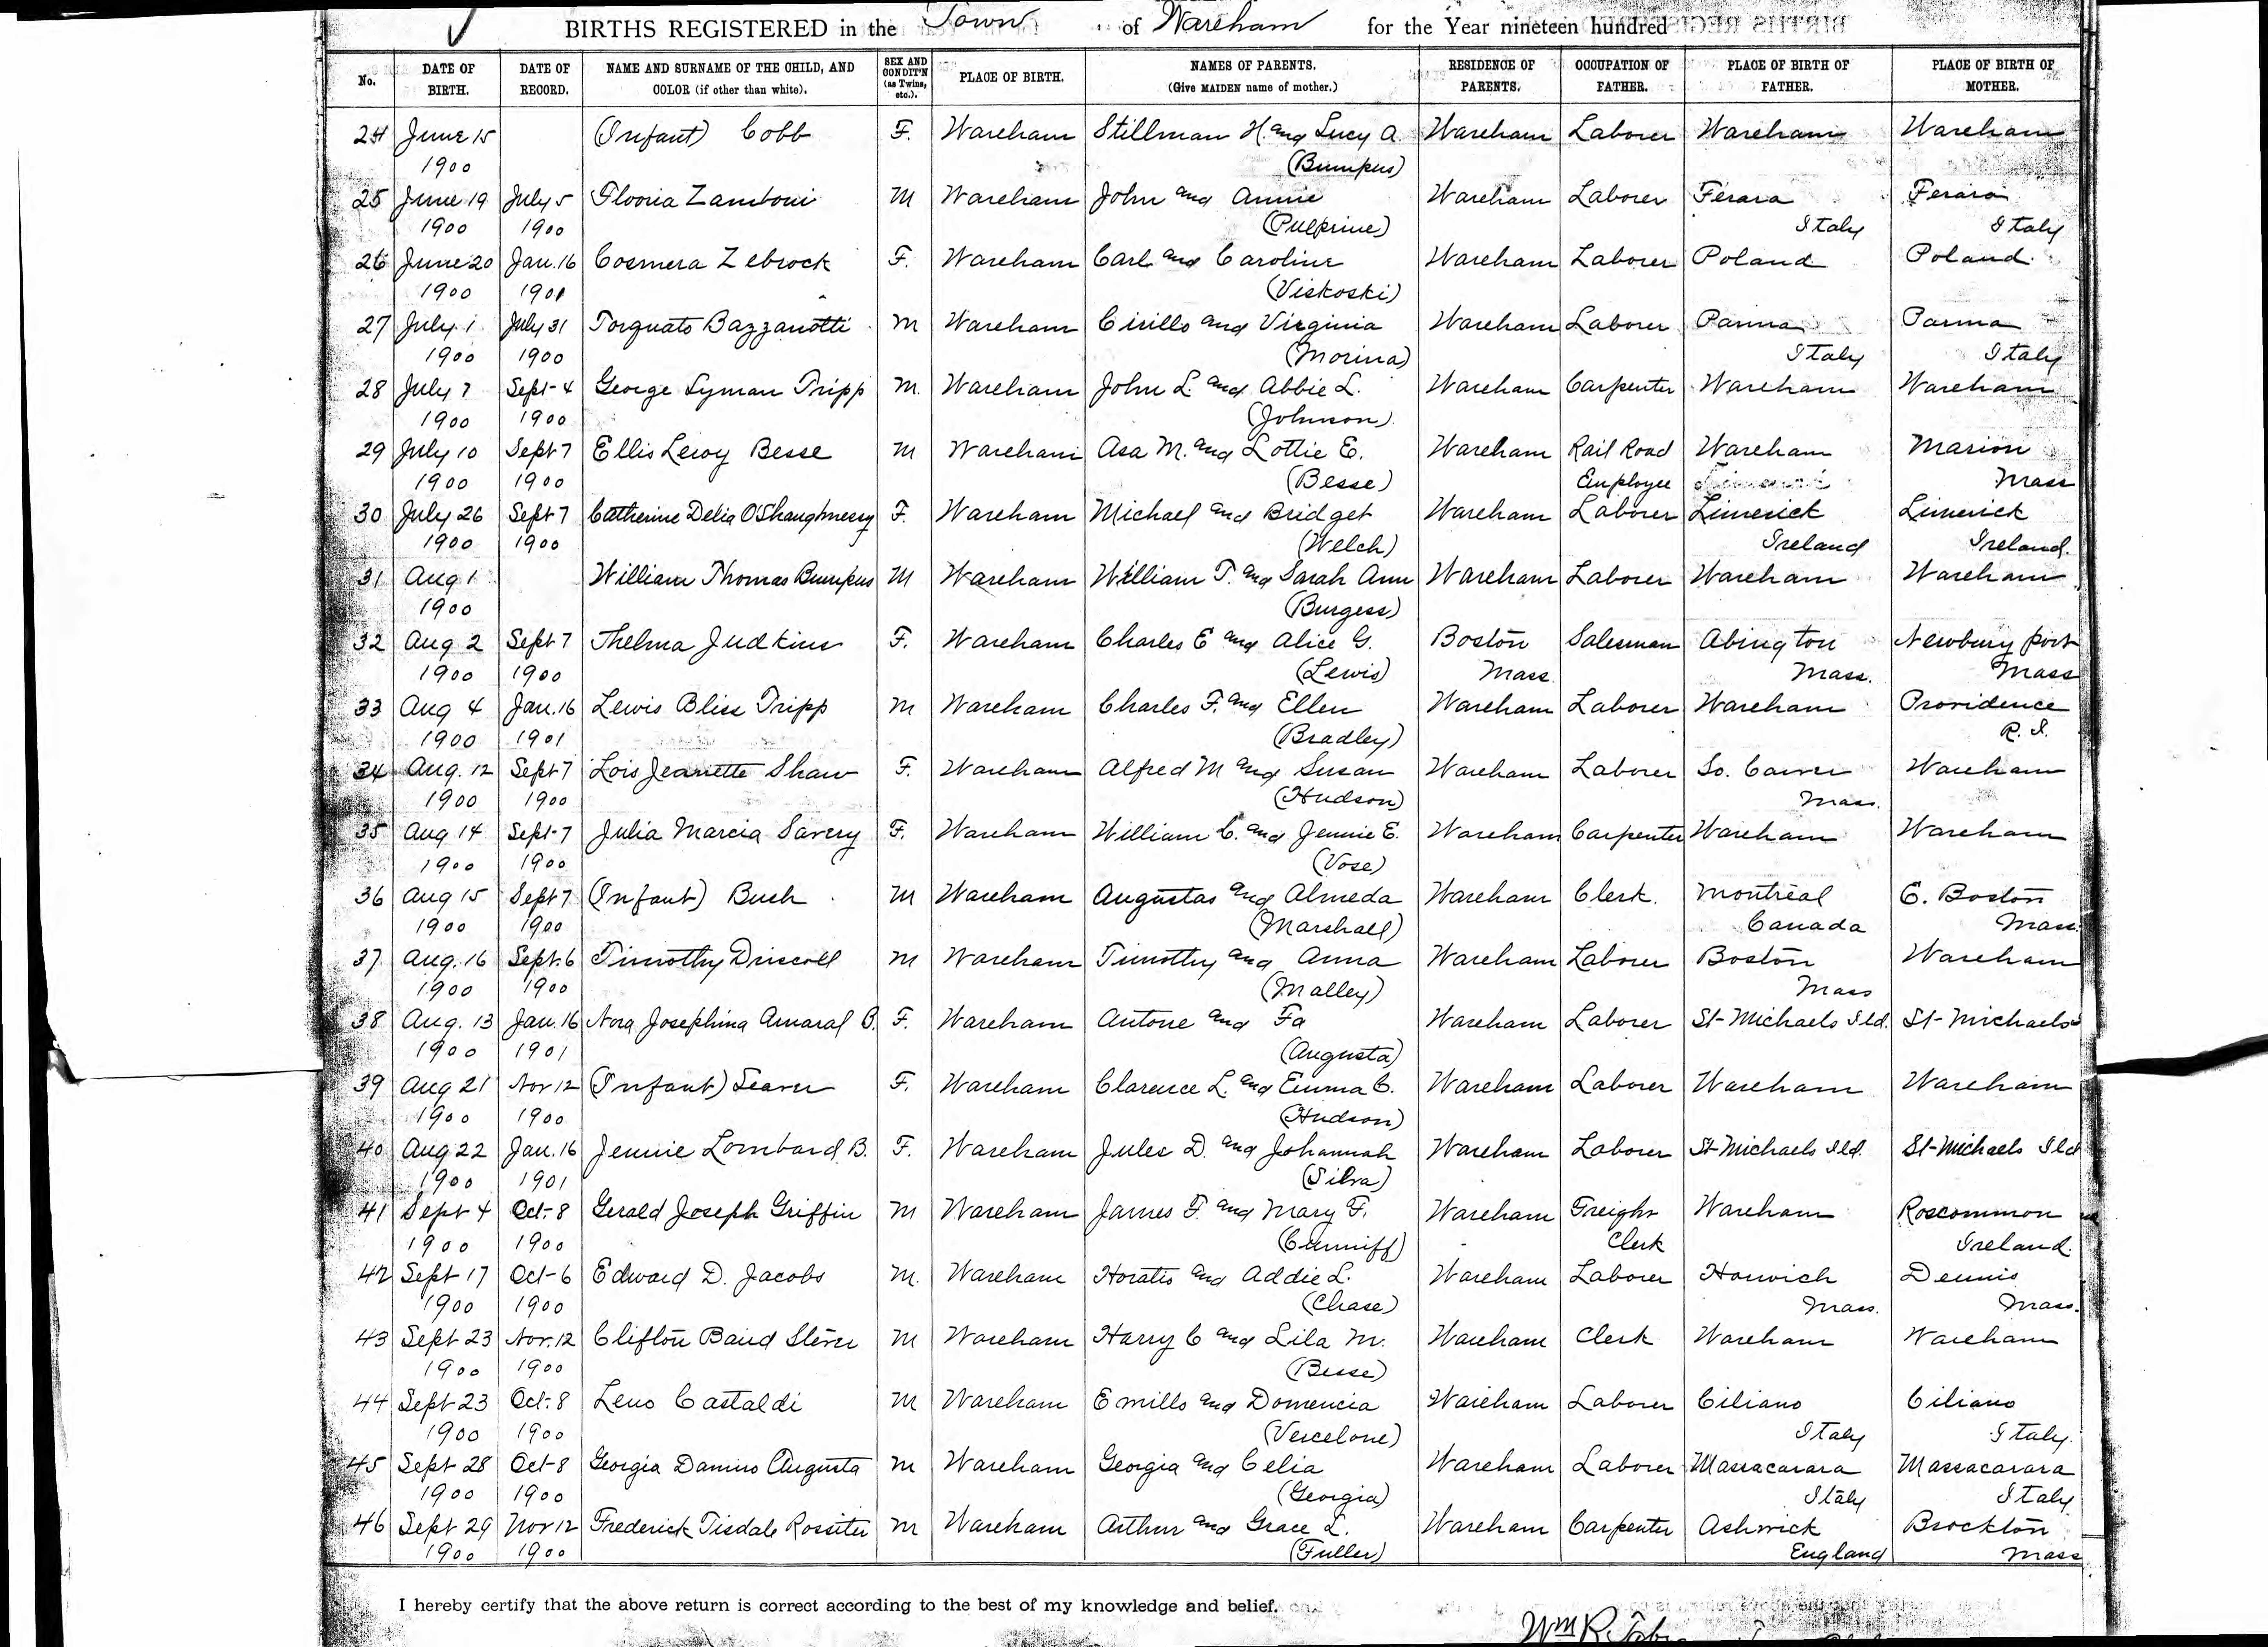 BIRTHS REGISTERED in the Town of Wareham for the Year nineteen hundred
No. DATE OF BIRTH. DATE OF RECORD. NAME AND SURNAME OF THE CHILD, AND COLOR (if other than white). SEX AND CONDIT'N (as Twins, etc.). PLACE OF BIRTH. NAMES OF PARENTS. (Give MAIDEN name of mother.) RESIDENCE OF PARENTS. OCCUPATION OF FATHER. PLACE OF BIRTH OF FATHER. PLACE OF BIRTH OF MOTHER.
24 June 15 (Infant) Cobb F. Wareham Stillman H. and Lucy A. Wareham Laborer Wareham Wareham
1900 (Bumpus)
25 June 19 July 5 Zamboni M Wareham John and Annie Wareham Laborer Ferara Ferara
1900 1900 Italy Italy
26 June 20 Jan. 16 Cosmera Zebrock F. Wareham Carl and Caroline Wareham Laborer Poland Poland
1900 1901 (Viskoski)
27 July 1 July 31 Torquato Bazzanotti M Wareham Cirillo and Virginia Wareham Laborer Parma Parma
1900 1900 (Morina) Italy Italy
28 July 7 Sept 4 George Lyman Tripp M. Wareham John L. and Abbie L. Wareham Carpenter Wareham Wareham
1900 1900 (Johnson)
29 July 10 Sept 7 Ellis Leroy Besse M Wareham Asa M. and Lottie E. Wareham Rail Road Wareham Marion
1900 1900 (Besse) Employee Mass
30 July 26 Sept 7 Catherine Delia O'Shaughnessy F. Wareham Michael and Bridget Wareham Laborer Limerick Limerick
1900 1900 (Welch) Ireland Ireland.
31 Aug 1 William Thomas Bumpus M Wareham William T. and Sarah Ann Wareham Laborer Wareham Wareham
1900 (Burgess)
32 Aug 2 Sept 7 Thelma Judkins F. Wareham Charles E and Alice G. Boston Salesman Abington Newbury port
1900 1900 (Lewis) Mass. Mass. Mass
33 Aug 4 Jan. 16 Lewis Bliss Tripp M Wareham Charles F. and Ellen Wareham Laborer Wareham Providence
1900 1901 (Bradley) R. I.
34 Aug. 12 Sept 7 Lois Jeanette Shaw F. Wareham Alfred M and Susan Wareham Laborer So. Carver Wareham
1900 1900 (Hudson) Mass.
35 Aug 14 Sept 7 Julia Marcia Savery F. Wareham William C. and Jennie E. Wareham Carpenter Wareham Wareham
1900 1900 (Vose)
36 Aug 15 Sept 7 (Infant) Bush M Wareham Augustas and Almeda Wareham Clerk. Montreal E. Boston
1900 1900 (Marshall) Canada Mass.
37 Aug. 16 Sept. 6 Timothy Driscoll M Wareham Timothy and Anna Wareham Laborer Boston Wareham
1900 1900 (Malley) Mass
38 Aug. 13 Jan. 16 Nora Josephina Amaral B. F. Wareham Antone and Fa Wareham Laborer St-Michaels Ild. St-Michaels
1900 1901 (Augusta)
39 Aug 21 Nov 12 (Infant) Searu F. Wareham Clarence L. and Emma C. Wareham Laborer Wareham Wareham
1900 1900 (Hudson)
40 Aug 22 Jan. 16 Jennie Lombard B. F. Wareham Jules D. and Johannah Wareham Laborer St-Michaels Ild. St-Michaels Ild
1900 1901 (Silva)
41 Sept 4 Oct. 8 Gerald Joseph Griffin M Wareham James F. and Mary F. Wareham Freight Wareham Roscommon
1900 1900 (Cunniff) Clerk Ireland.
42 Sept 17 Oct-6 Edward D. Jacobs M. Wareham Horatio and Addie L. Wareham Laborer Harwich Dennis
1900 1900 (Chase) Mass. Mass.
43 Sept 23 Nov. 12 Clifton Baird M Wareham Harry C and Lila M. Wareham Clerk Wareham Wareham
1900 1900 (Besse)
44 Sept 23 Oct. 8 Leno Castaldi M Wareham Emillo and Domencia Wareham Laborer Ciliano Ciliano
1900 1900 (Vercelone) Italy Italy.
45 Sept 28 Oct-8 Georgia Damino Augusta M Wareham Georgia and Celia Wareham Laborer Massacarara Massacarara
1900 1900 (Georgia) Italy Italy
46 Sept 29 Nov 12 Frederick Tisdale Rossiter M Wareham Arthur and Grace L. Wareham Carpenter Ashwick Brockton
1900 1900 (Fuller) England Mass
I hereby certify that the above return is correct according to the best of my knowledge and belief.
Wm R.